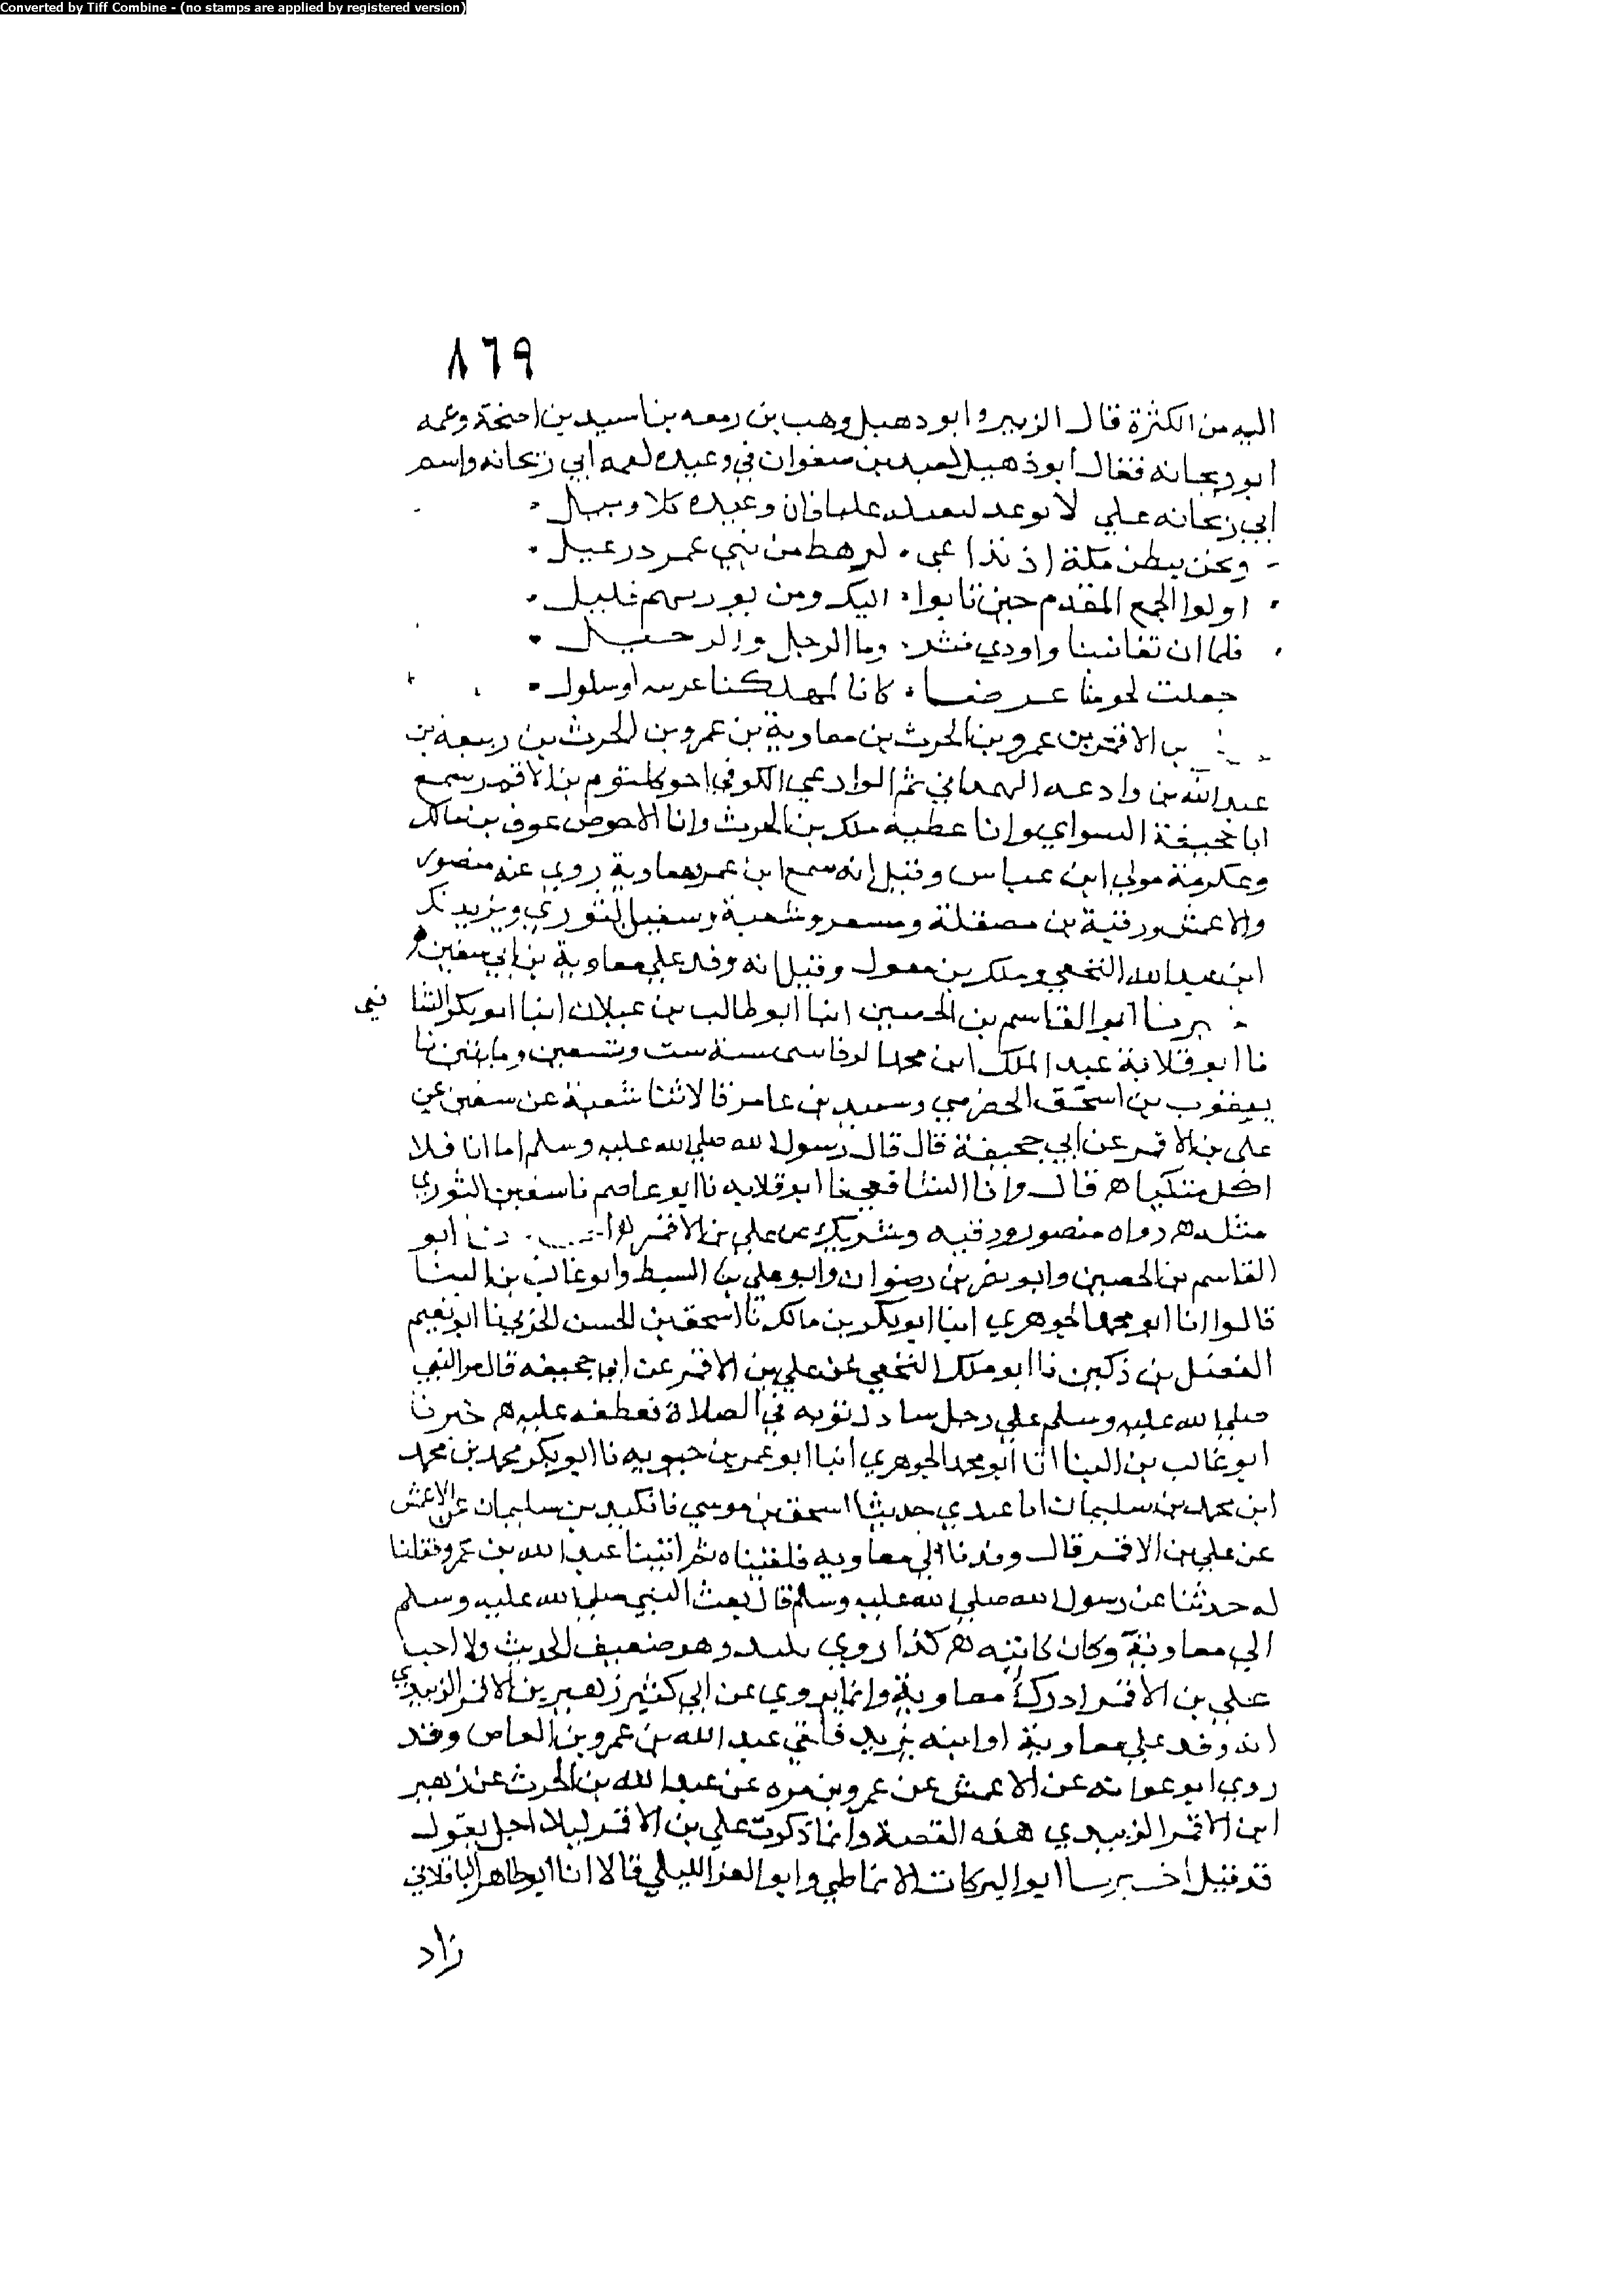 Converted by Tiff Combine - (no stamps are applied by registered version)
٨٦٩
اليه من الكثرة قال الزبير وابو دهبل وهب بن رمعه بن اسيد بن احيحة وعمه
ابو ريحانه فقال ابو ذهبل لعبد بن صفوان في وعيده لعمه ابي ريحانه واسم
ابي ريحانه علي لا توعد لتعلم عليا فان وعيده كلا وبيل
ونحن ببطن مكة اذ تداعى لرهط من بني عمرو رعيل
اولوا الجمع المقدم حين ثابوا اليك ومن يود رسهم قليل
فلما ان تفانينا واودي وما الرجل والرحيل
جعلت لحومنا غرضا كانا لتهلكنا عرينه او سلول
بن الاقمر بن عمرو بن الحرث بن معاوية بن عمرو بن الحرث بن ربيعة بن
عبد الله بن وادعه الهمداني ثم الوادعي الكوفي اخو كلثوم بن الاقمر سمع
ابا جحيفة السواي وانا عطية ملك بن الحرث وانا الاحوص عوف بن مالك
وعكرمة مولى ابن عباس وقيل انه سمع ابن عمر ومعاوية روي عنه منصور
والاعمش ورقبة بن مصقلة ومسعر وشعبة وسفين الثوري ويزيد
ابن عبد الله النخعي وملك بن مغول وقيل انه وفد علي معاوية بن ابي سفين
برنا ابو القاسم بن الحصين انبا ابو طالب بن غيلان انبا ابو بكر الشا فعي
نا ابو قلابة عبد الملك ابن محمد الرقاسى سنة ست وسبعين ومايتين نا
يعقوب بن اسحق الحضرمي وسعيد بن عامر قالا ثنا شعبة عن سفين عن
على بن الاقمر عن ابي جحيفة قال قال رسول الله صلي الله عليه وسلم اما انا فلا
اكل متكيا هـ قال وانا الشافعي نا ابو قلابه نا ابو عاصم نا سفين الثوري
مثله هـ رواه منصور ورقبه وشريك عن علي بن الاقمر هـ رنا ابو
القاسم بن الحصين وابو نصر بن رضوان وابو علي بن السبط وابو غالب بن البنا
قالوا انا ابو محمد الجوهري انبا ابو بكر بن مالك نا اسحق بن الحسن الحربي نا ابو نعيم
الفضل بن ذكين نا ابو ملك النخعي عن علي بن الاقمر عن ابي جحيفه قال مر النبي
صلي الله عليه وسلم علي رجل سادل ثوبه في الصلاة فعطفه عليه هـ خبرنا
ابو غالب بن البنا انا ابو محمد الجوهري انبا ابو عمر بن حيويه نا ابو بكر محمد بن محمد
ابن محمد بن سليمان حدثنا اسحق بن موسي نا تليد بن سليمان عن الاعمش
عن علي بن الاقمر قال وفدنا الي معاويه فلقيناه ثم اتينا عبد الله بن عمرو فقلنا
له حدثنا عن رسول الله صلي الله عليه وسلم قال بعث النبي صلي الله عليه وسلم
الي معاوية وكان كاتبه هـ كذا روي تليد وهو ضعيف الحديث ولا احب
علي بن الاقمر ادرك معاوية وانما يروي عن ابي كثير زهير بن الاقمر الزبيدي
انه وفد علي معاوية او ابنه يزيد فلقي عبد الله بن عمرو بن العاص وقد
روي ابو عوانه عن الاعمش عن عمرو بن مره عن عبد الله بن الحرث عن زهير
ابن الاقمر الزبيدي هذه القصة وانما ذكرت علي بن الاقمر ليلا اجل بقول
قد قيل اخبرنا ابو البركات الانماطي وابو العز الليلي قالا انا ابو طاهر الباقلاني
زاد